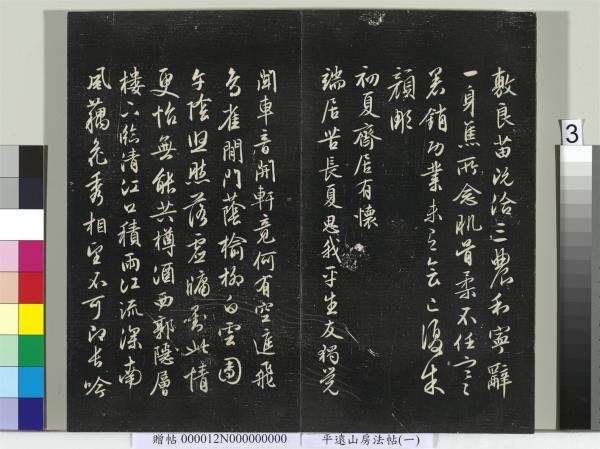 敷良苗況洽三農和寧辭
一身焦所念肌骨柔不任寒
暑銷功業未立會亡復朱
顏彫
初夏齋居有懷
端居苦長夏思我平生友獨覺
聞車音開軒竟何有空進飛
鳥雀閒門蔭榆柳白雲團
午陰照落虛牖對此情
更怡無能共樽酒西郭隱層
樓下臨清江口積雨江流深南
風藕花秀相望不可即長吟
3
贈帖 000012N000000000 平遠山房法帖(一)